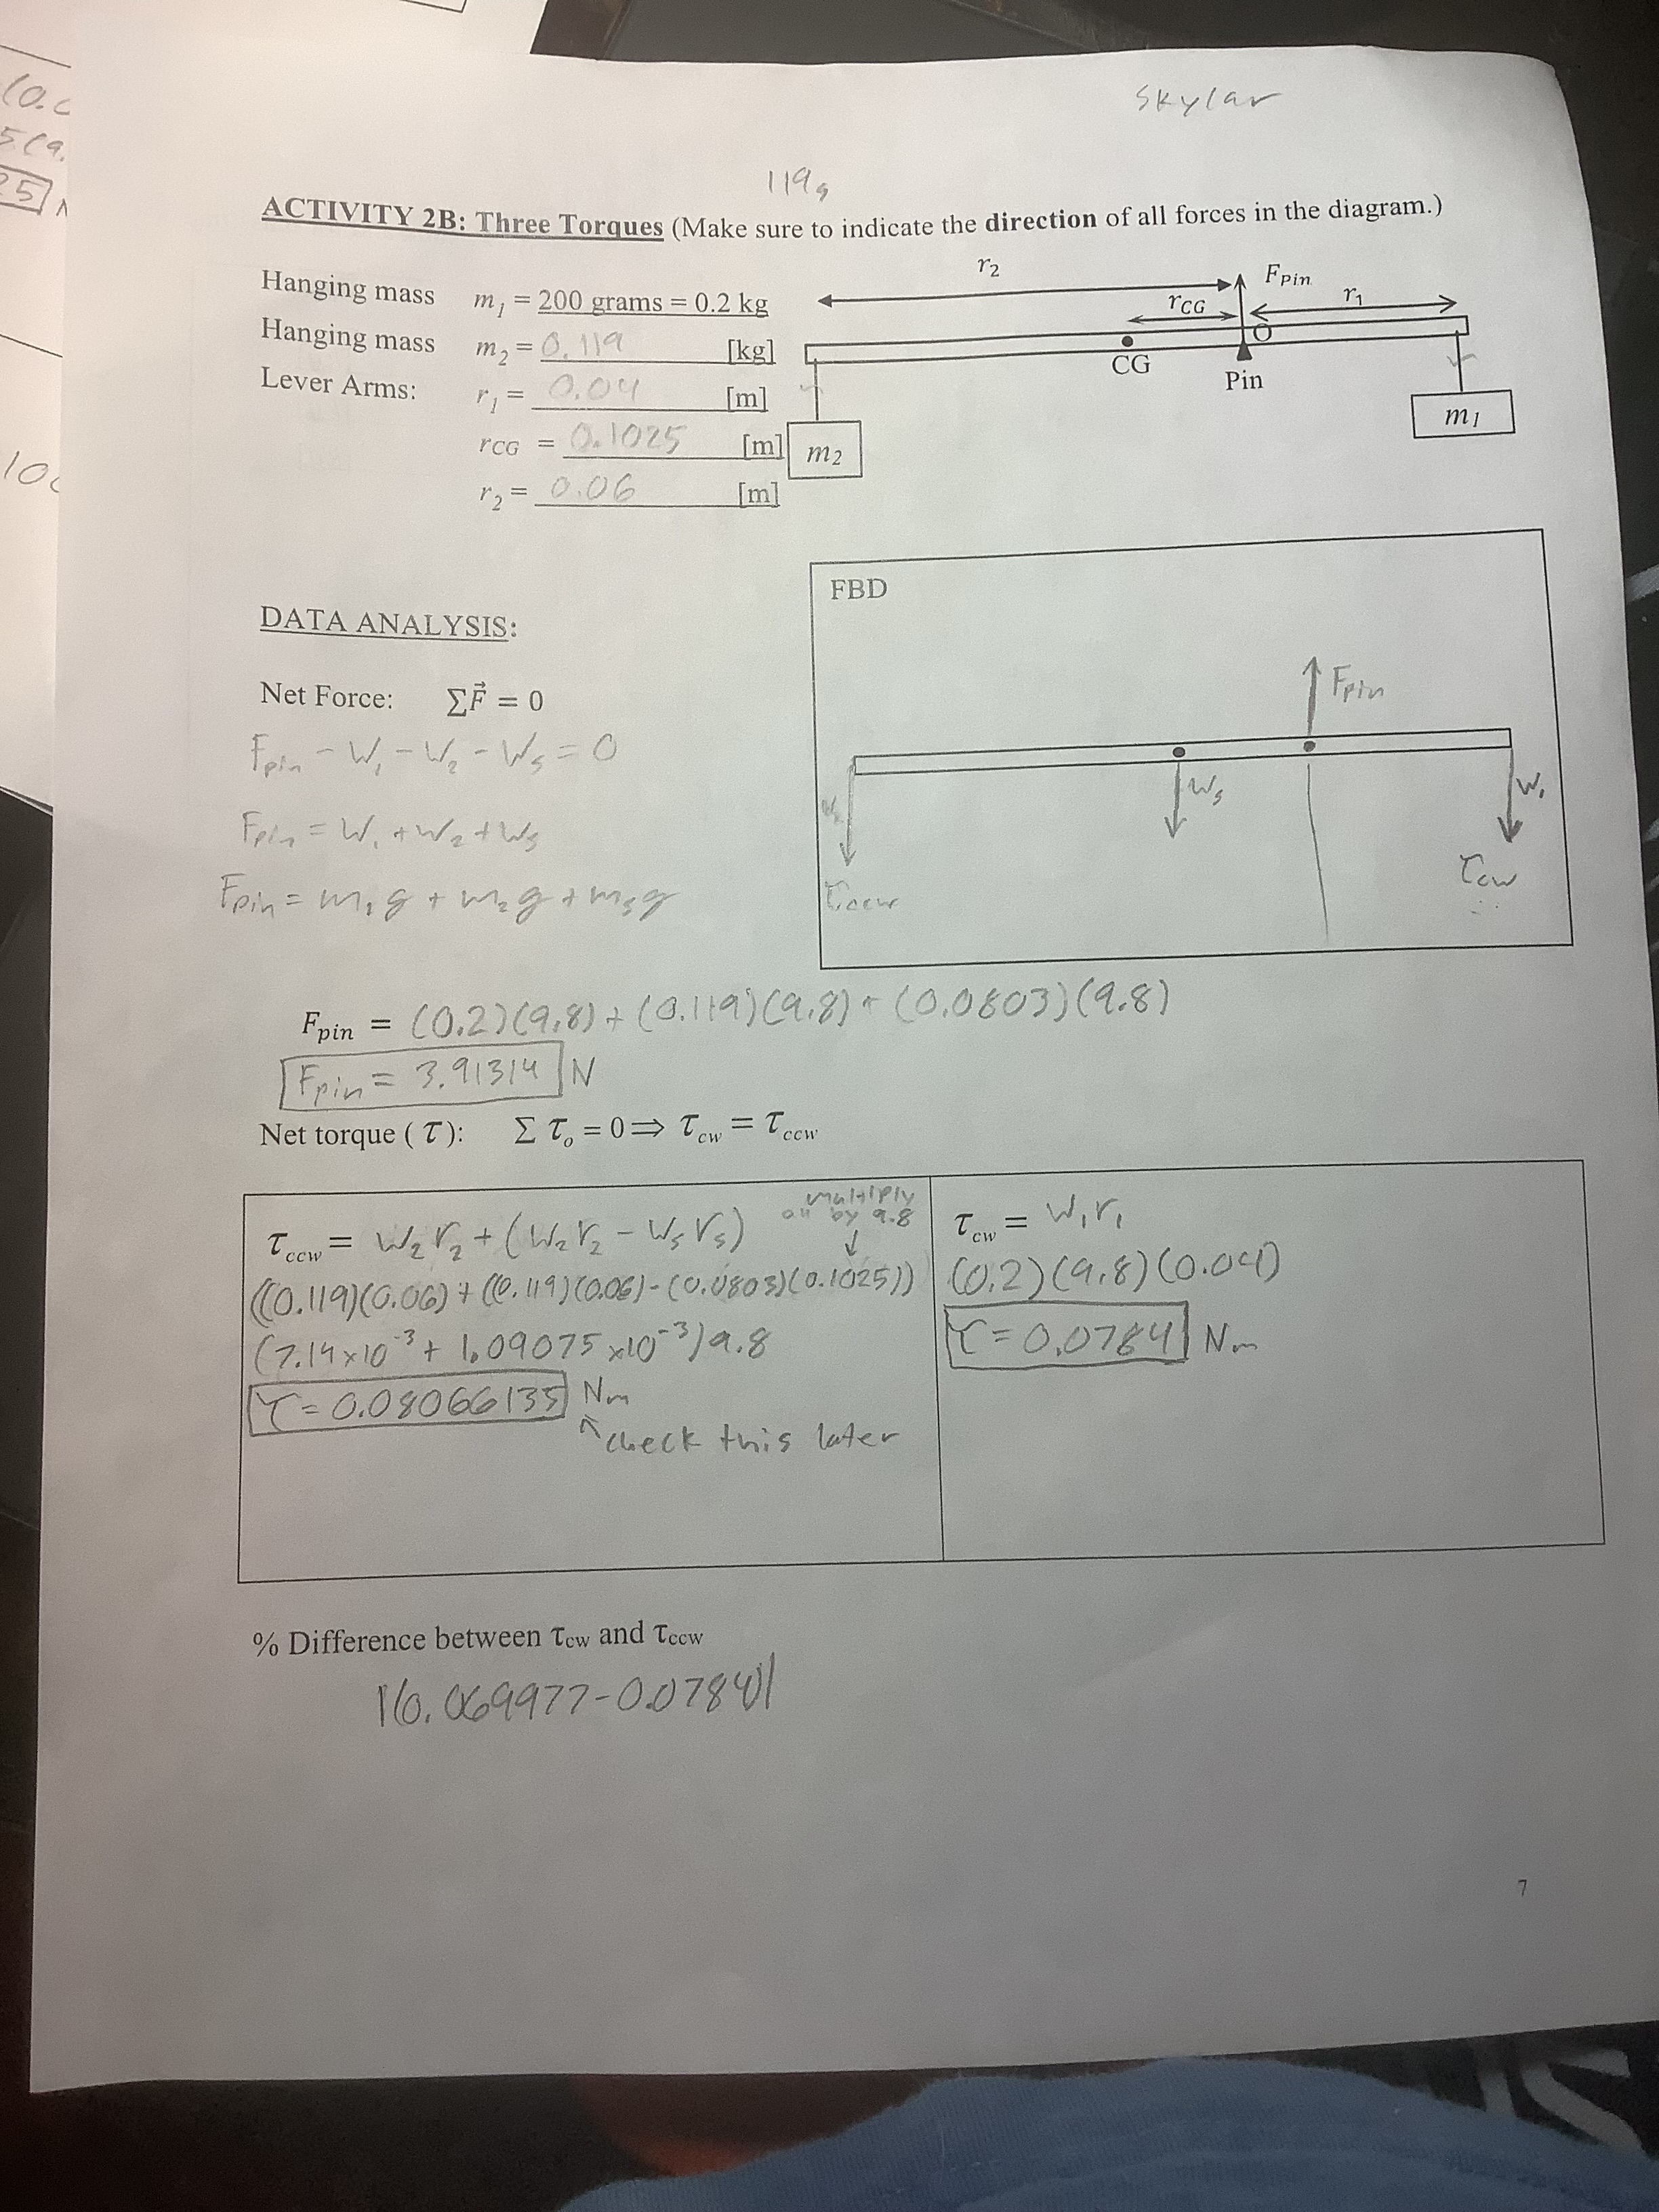 (0.0
5(9.
25] N
10
Skylar
119g
ACTIVITY 2B: Three Torques (Make sure to indicate the direction of all forces in the diagram.)
Hanging mass m₁ = 200 grams = 0.2 kg
Hanging mass m₂ = 0.119 [kg]
Lever Arms: r₁ = 0.04 [m]
rCG = 0.1025 [m]
r₂ = 0.06 [m]
r₂
Fpin
rCG
r₁
O
CG
Pin
m₂
m₁
FBD
Fpin
Ws
W₁
τccw
τcw
DATA ANALYSIS:
Net Force: ∑F⃗ = 0
Fpin - W₁ - W₂ - Ws = 0
Fpin = W₁ + W₂ + Ws
Fpin = m₁g + m₂g + msg
Fpin = (0.2)(9.8) + (0.119)(9.8) + (0.0803)(9.8)
Fpin = 3.91314 N
Net torque (τ): ∑ τₒ = 0 ⇒ τcw = τccw
τccw = W₂r₂ + (W₂r₂ - Wsrs)
multiply
all by 9.8
↓
((0.119)(0.06) + ((0.119)(0.06) - (0.0803)(0.1025))
(7.14x10⁻³ + 1.09075x10⁻³)9.8
τ = 0.08066135 Nm
check this later
τcw = W₁r₁
(0.2)(9.8)(0.04)
τ = 0.0784 Nm
% Difference between τcw and τccw
|(0.069977-0.0784)|
7